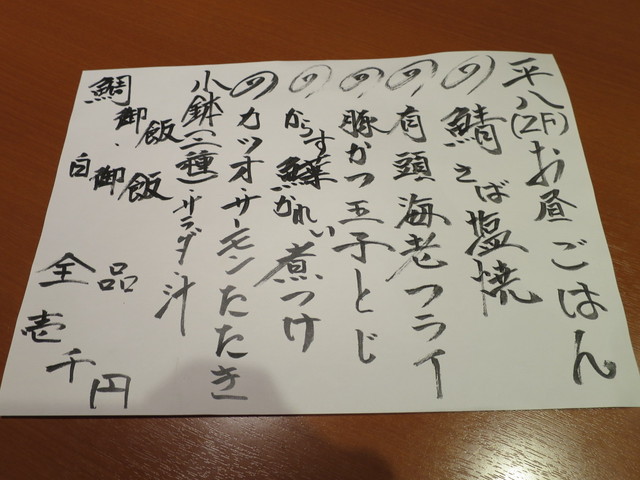 平八(2F)お昼ごはん
の 鯖そば塩焼
の 有頭海老フライ
の 豚かつ玉子とじ
の からす鰈がれい煮つけ
の カツオ・サーモンたたき
小鉢(二種)・サラダ・汁
鯛御飯・白御飯
全品
壱千円